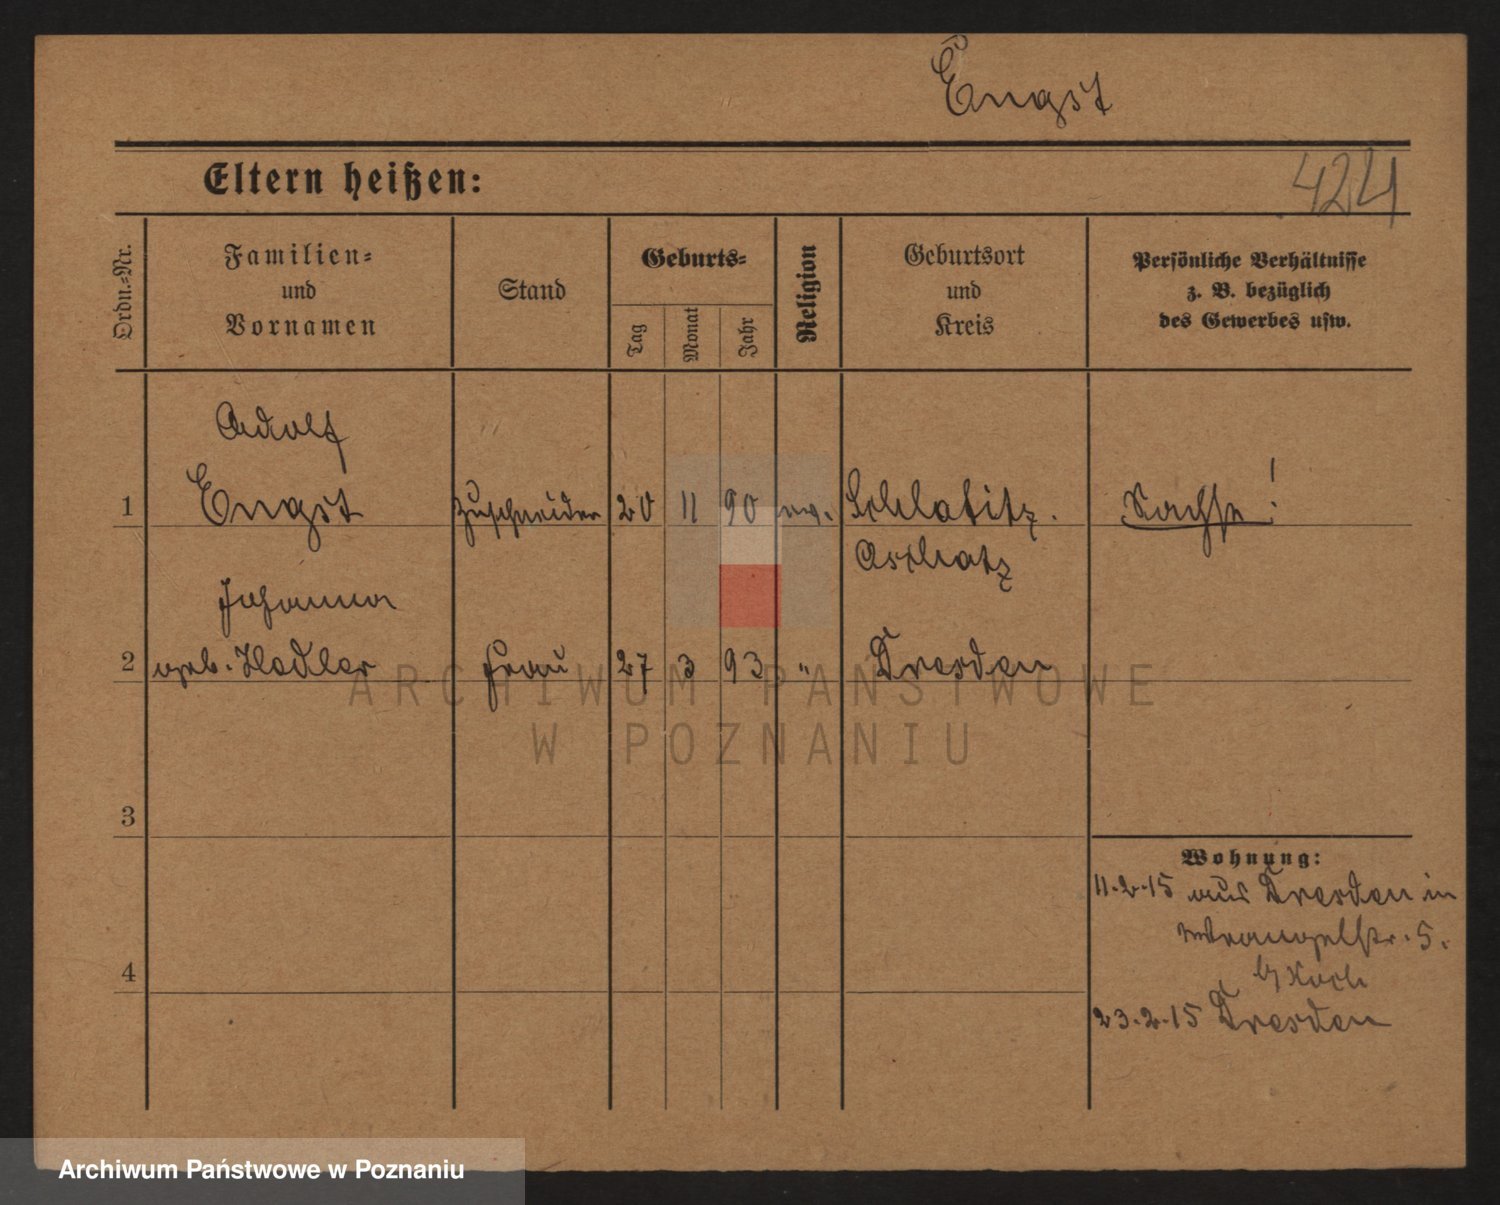 Engst
Eltern heißen:
424
Ordn.-Nr.
Familien-
und
Vornamen
Stand
Geburts-
Tag
Monat
Jahr
Religion
Geburtsort
und
Kreis
Persönliche Verhältnisse
z. B. bezüglich
des Gewerbes usw.
Adolf
1 Engst Zuschneider 20 11 90 ev. Schlabitz.
Sachse!
Johanna
2 geb. Hedler Frau 27 3 93 " Dresden
ARCHIWUM PAŃSTWOWE
W POZNANIU
3
Wohnung:
11.2.15 aus Dresden in
Wrangelstr. 5.
b/ Koch
4
23.2.15 Dresden
Archiwum Państwowe w Poznaniu